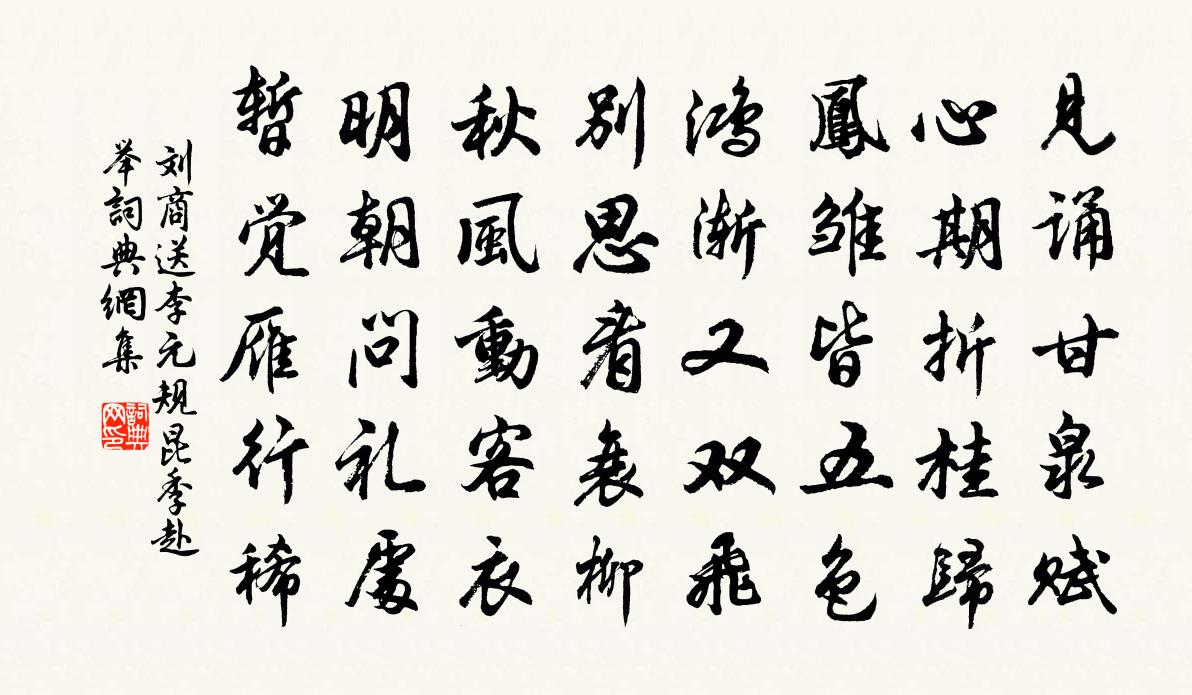 見诵甘泉赋
心期折桂歸
鳳雏皆五色
鸿渐又双飛
别思看衰柳
秋風動客衣
明朝问礼處
暫觉雁行稀
刘商送李元规昆季赴
举詞典網集
詞典网印